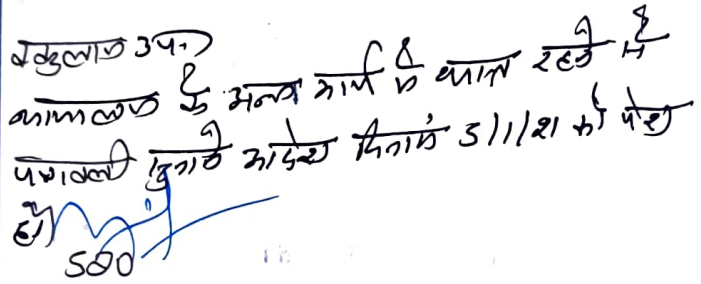 वकुलाय उप०
कार्यालय के अन्य कार्य में व्यस्त रहने से
पत्रावली हुनावे आदेश दिनांक 5/1/21 को पेश
हो
SDO